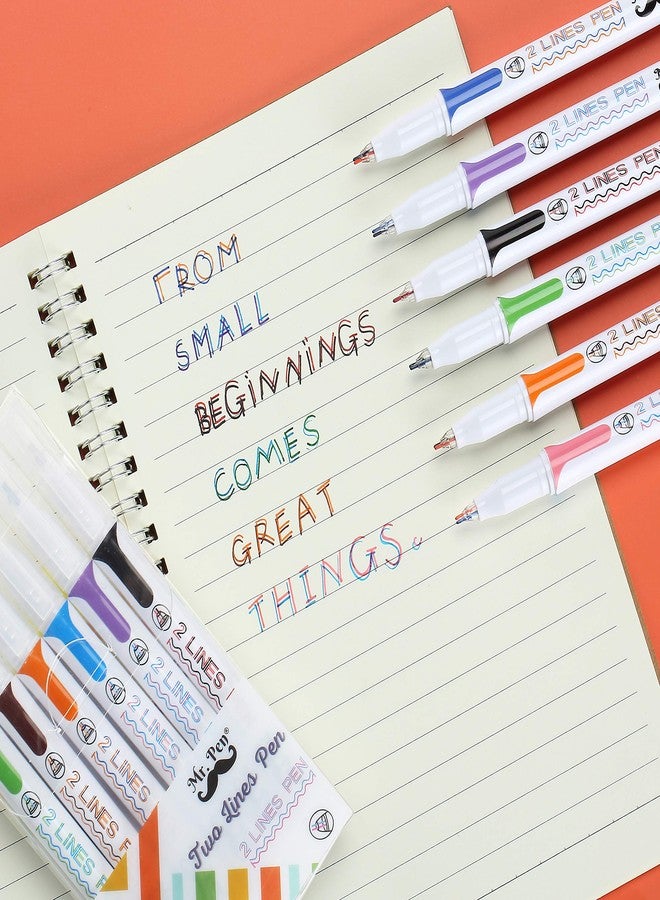 2 LINES PEN
2 LINES PEN
2 LINES PEN
2 LINES PEN
2 LINES
2 L
FROM
SMALL
BEGiNNiNGS
COMES
GREAT
THINGS.
2 LINES
2 LINES
2 LINES
2 LINES
2 LINES
Mr. Pen®
Two Lines Pen
2 LINES PEN